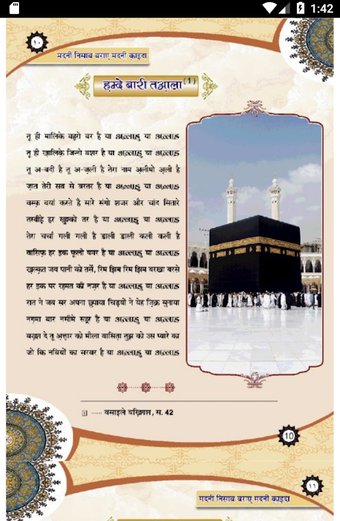 1:42
१०
मदनी निसाब बराए मदनी काइदा
हम्दे बारी तआला(1)
तू ही मालिके बहरो बर है या अल्लाहु या अल्लाह
तू ही ख़ालिके जिन्नो बशर है या अल्लाहु या अल्लाह
तू अ-बदी है तू अ-ज़ली है तेरा नाम अलीमो अली है
ज़ात तेरी सब से बरतर है या अल्लाहु या अल्लाह
वस्फ़ बयां करते हैं सारे संगो शजर और चांद सितारे
तस्बीहे हर खुश्को तर है या अल्लाहु या अल्लाह
तेरा चर्चा गली गली है डाली डाली कली कली है
वासिफ़ हर इक फूलो समर है या अल्लाहु या अल्लाह
ख़ल्क़त जब पानी को तरसे, रिम झिम रिम झिम बरखा बरसे
हर इक पर रहमत की नज़र है या अल्लाहु या अल्लाह
रात ने जब सर अपना छुपाया चिड़ियों ने येह ज़िक्र सुनाया
नग़मा बार नसीमे सहर है या अल्लाहु या अल्लाह
बख़्श दे तू अत्तार को मौला वासिता तुझ को उस प्यारे का
जो कि नबियों का सरवर है या अल्लाहु या अल्लाह
1 ..... वसाइले बख़्शिश, स. 42
10
११
मदनी निसाब बराए मदनी काइदा